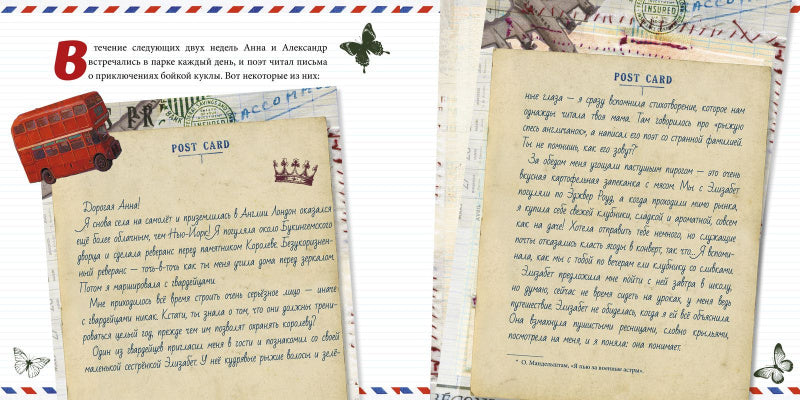 В течение следующих двух недель Анна и Александр
встречались в парке каждый день, и поэт читал письма
о приключениях бойкой куклы. Вот некоторые из них:
INSURED
ACCOMM
POST CARD
Дорогая Анна!
Я снова села на самолёт и приземлилась в Англии. Лондон оказался
ещё более облачным, чем Нью-Йорк! Я погуляла около Букингемского
дворца и сделала реверанс перед памятником Королеве. Безукоризнен-
ный реверанс — точь-в-точь как ты меня учила дома перед зеркалом.
Потом я маршировала с гвардейцами.
Мне приходилось всё время строить очень серьёзное лицо — иначе
с гвардейцами никак. Кстати, ты знала о том, что они должны трени-
роваться целый год, прежде чем им позволят охранять королеву?
Один из гвардейцев пригласил меня в гости и познакомил со своей
маленькой сестрёнкой Элизабет. У неё кудрявые рыжие волосы и зелё-
INSURED
ACCOMM
POST CARD
ные глаза — я сразу вспомнила стихотворение, которое нам
однажды читала твоя мама. Там говорилось про «рыжую
спесь англичанок», а написал его поэт со странной фамилией.
Ты не помнишь, как его зовут?*
За обедом меня угощали пастушьим пирогом — это очень
вкусная картофельная запеканка с мясом. Мы с Элизабет
погуляли по Эджвер Роуд, а когда проходили мимо рынка,
я купила себе свежей клубники, сладкой и ароматной, совсем
как на даче! Хотела отправить тебе немного, но служащие
почты отказались класть ягоды в конверт, так что... Я вспоми-
нала, как мы с тобой по вечерам ели клубнику со сливками.
Элизабет предложила мне пойти с ней завтра в школу,
но думаю, сейчас не время сидеть на уроках, у меня ведь
путешествие. Элизабет не обиделась, когда я ей всё объяснила.
Она взмахнула пушистыми ресницами, словно крыльями,
посмотрела на меня, и я поняла: она понимает.
* О. Мандельштам, «Я пью за военные астры».